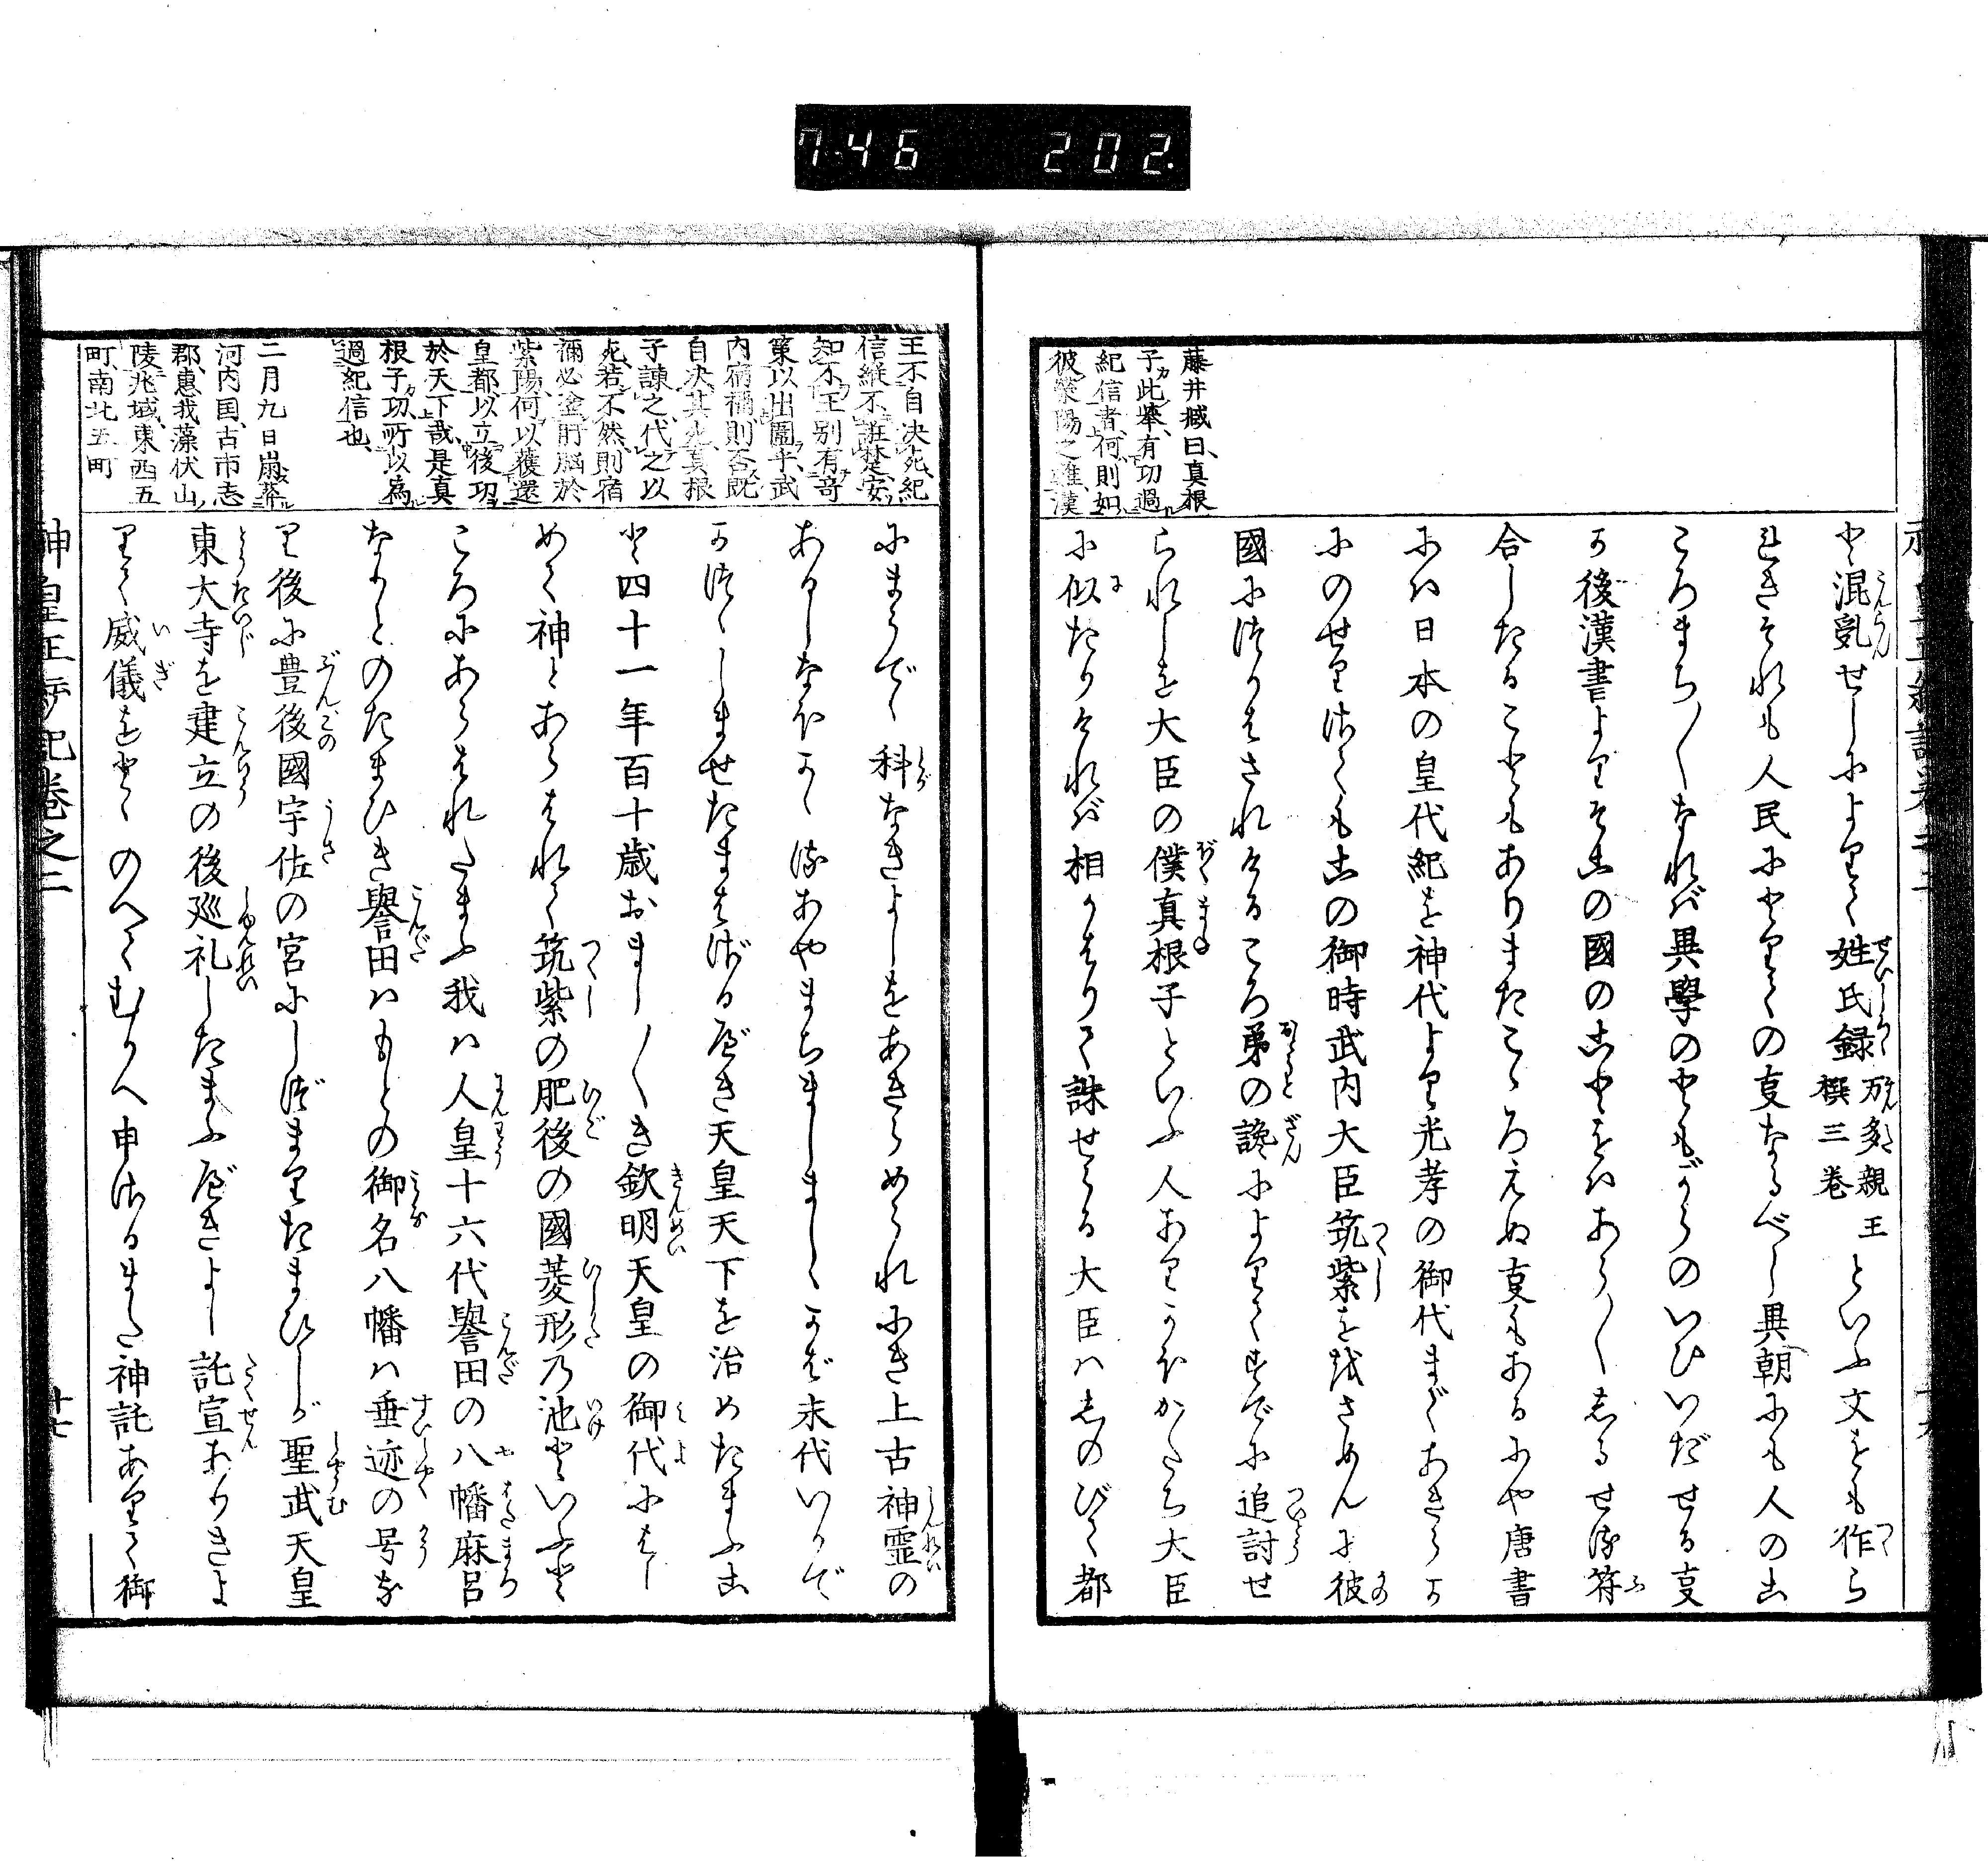 7.46 202.
藤井臧曰、真根
子此舉、有功過
紀信者、何則如
彼滎陽之難、漢
と混乱せしによりて姓氏録万多親王撰三巻といふ文をも作ら
れきそれも人民にとりての事なるべし異朝にも人の心
ころまち〱なれば異學のともがらのいひいだせる事
か後漢書よりぞ此の國のことをバあら〱しるせる符
合したることもありまたこゝろえぬ事もあるにや唐書
にハ日本の皇代紀を神代より光孝の御代まであきらか
にのせりさても此の御時武内大臣筑紫をおさめんに彼
國につかはされけるころ弟の讒によりてすでに追討せ
られしを大臣の僕真根子といふ人ありかほかたち大臣
に似たりければ相かはりて誅せらる大臣ハしのびて都
王不自决死、紀
信縦不誑楚、安
知不王别有竒
策以出圍乎、武
内宿禰則否、既
自决其死、真根
子諫之、代之以
死、若不然、則宿
禰必塗肝脳於
紫陽、何以獲還
皇都以立後功
於天下哉、是真
根子功、所以為
過紀信也、
二月九日崩葬
河内国、古市志
郡、惠我藻伏山
陵兆域、東西五
町、南北五町
にまうでゝ科なきよしをあきらめられにき上古神霊の
あるじなほかゝるあやまちましましゝかば末代いかで
かつゝしませたまはざるべき天皇天下を治めたまふこ
と四十一年百十歳おまし〱き欽明天皇の御代にはじ
めて神とあらはれて筑紫の肥後の國菱形乃池といふと
ころにあらはれたまふ我ハ人皇十六代譽田の八幡麻呂
なりとのたまひき譽田ハもとの御名八幡ハ垂迹の号な
り後に豊後國宇佐の宮にしづまりたまひしが聖武天皇
東大寺を建立の後巡礼したまふべきよし託宣ありきよ
りて威儀をとゝのへてむかへ申さるまた神託ありて御
神皇正統記巻之二
十七